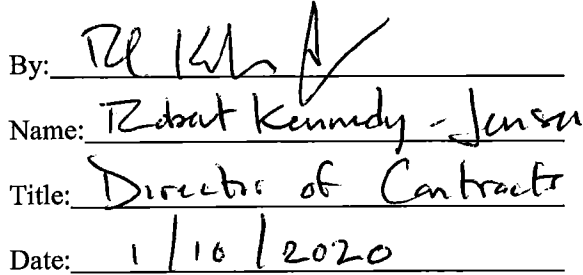 By:
Name: Robert Kennedy - Jensen
Title: Director of Contracts
Date: 1/10/2020